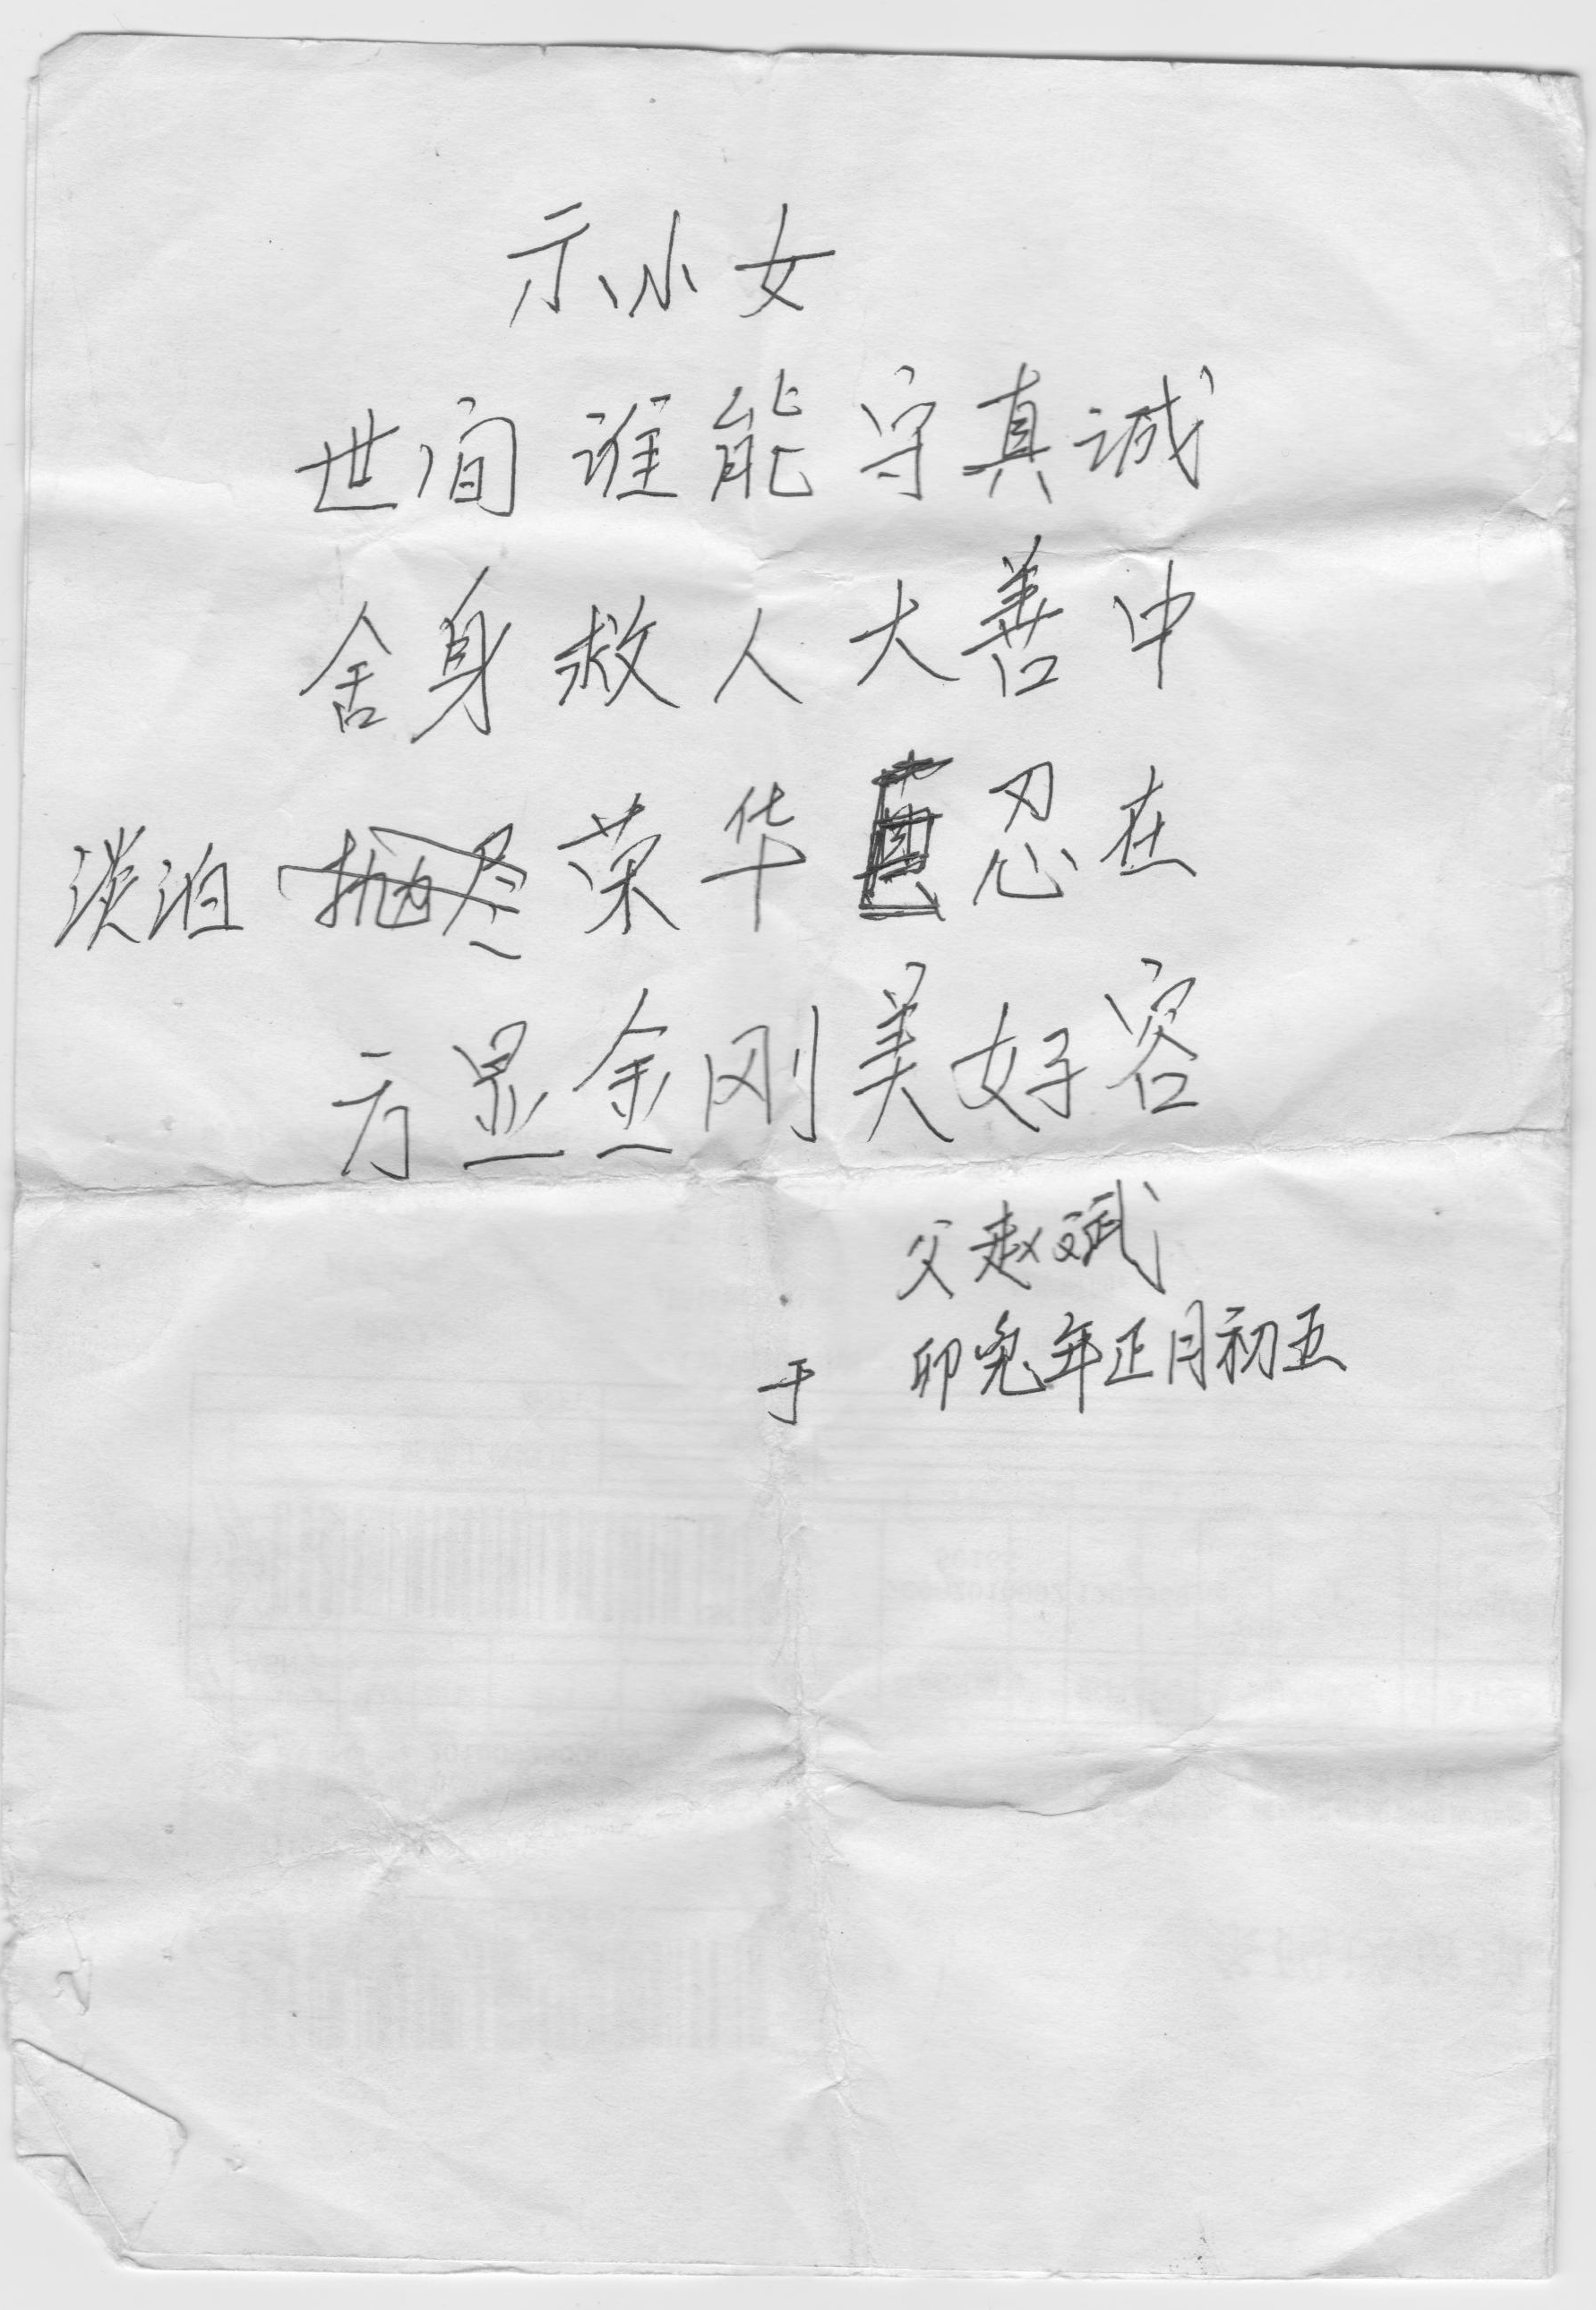 示小女
世间谁能守真诚
舍身救人大善中
淡泊抛尽荣华真忍在
方显金刚美好容
父赵斌
于 卯兔年正月初五